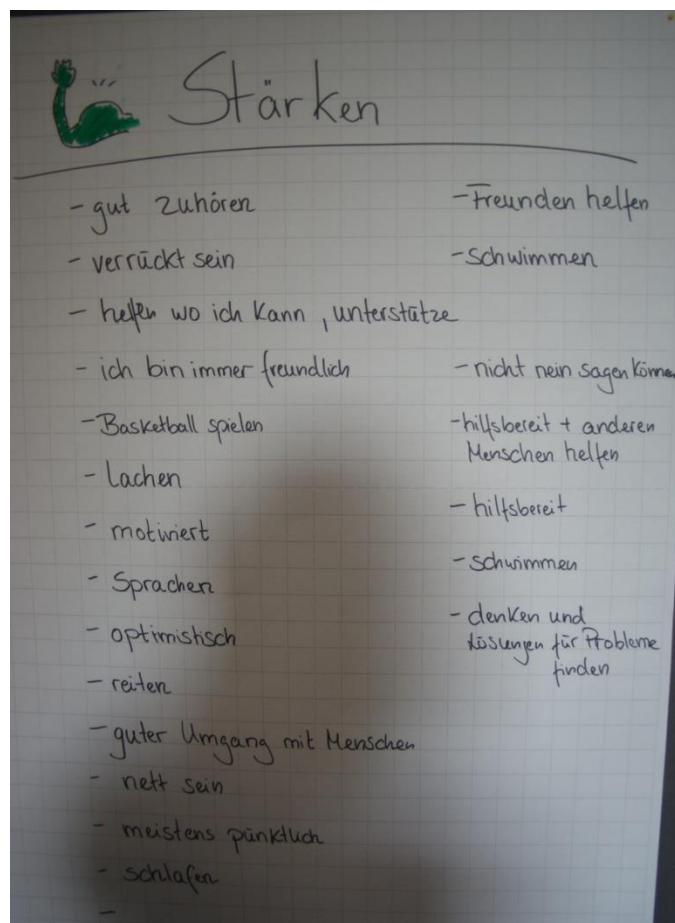 Stärken
- gut zuhören
- verrückt sein
- helfen wo ich kann, unterstütze
- ich bin immer freundlich
- Basketball spielen
- Lachen
- motiviert
- Sprachen
- optimistisch
- reiten
- guter Umgang mit Menschen
- nett sein
- meistens pünktlich
- schlafen
-
- Freunden helfen
- schwimmen
- nicht nein sagen könne
- hilfsbereit + anderen
Menschen helfen
- hilfsbereit
- schwimmen
- denken und
Lösungen für Probleme
finden